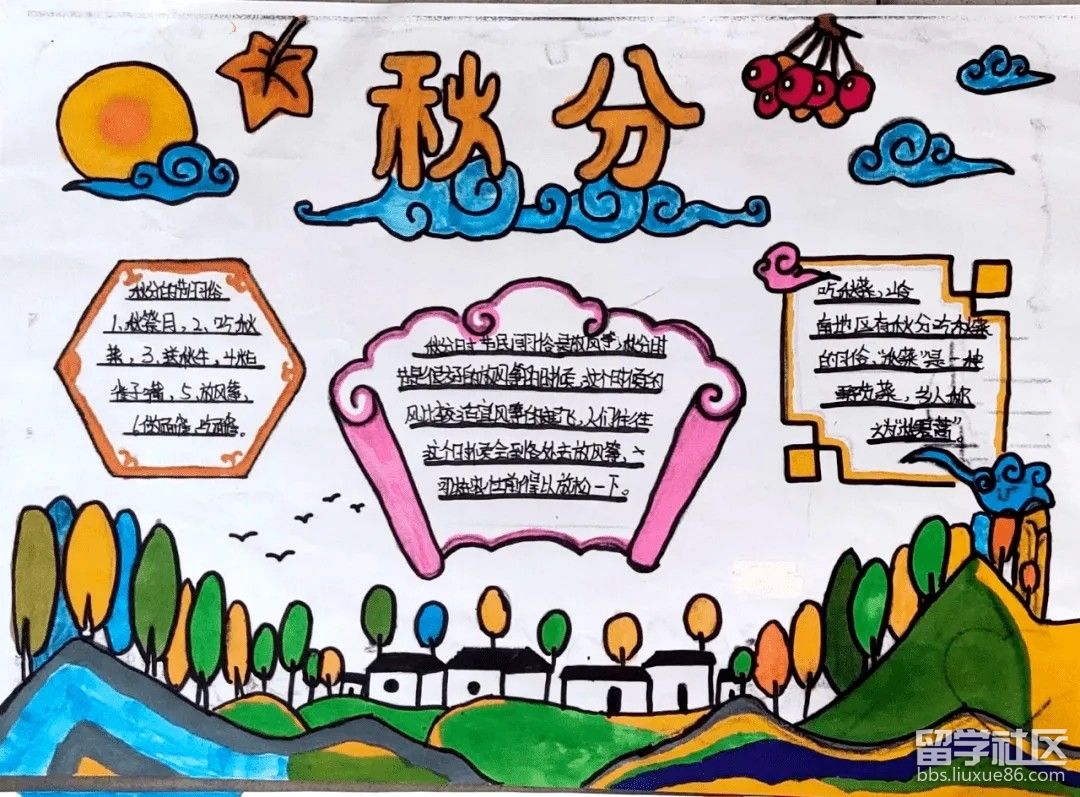 秋分
秋分的节日习俗
1、秋祭月，2、吃秋
菜，3、送秋牛，4、粘
雀子嘴，5、放风筝，
秋分时节民间习俗是放风筝，秋分时
节是很好的放风筝的时候，这个时候的
风比较适宜风筝的起飞，人们往往
这个时候会到各处去放风筝，
吃秋菜，岭
南地区有秋分吃秋菜
的习俗，“秋菜”是一种
野苋菜，乡人称
之为“秋碧蒿”。
留学社区
bbs.liuxue86.com